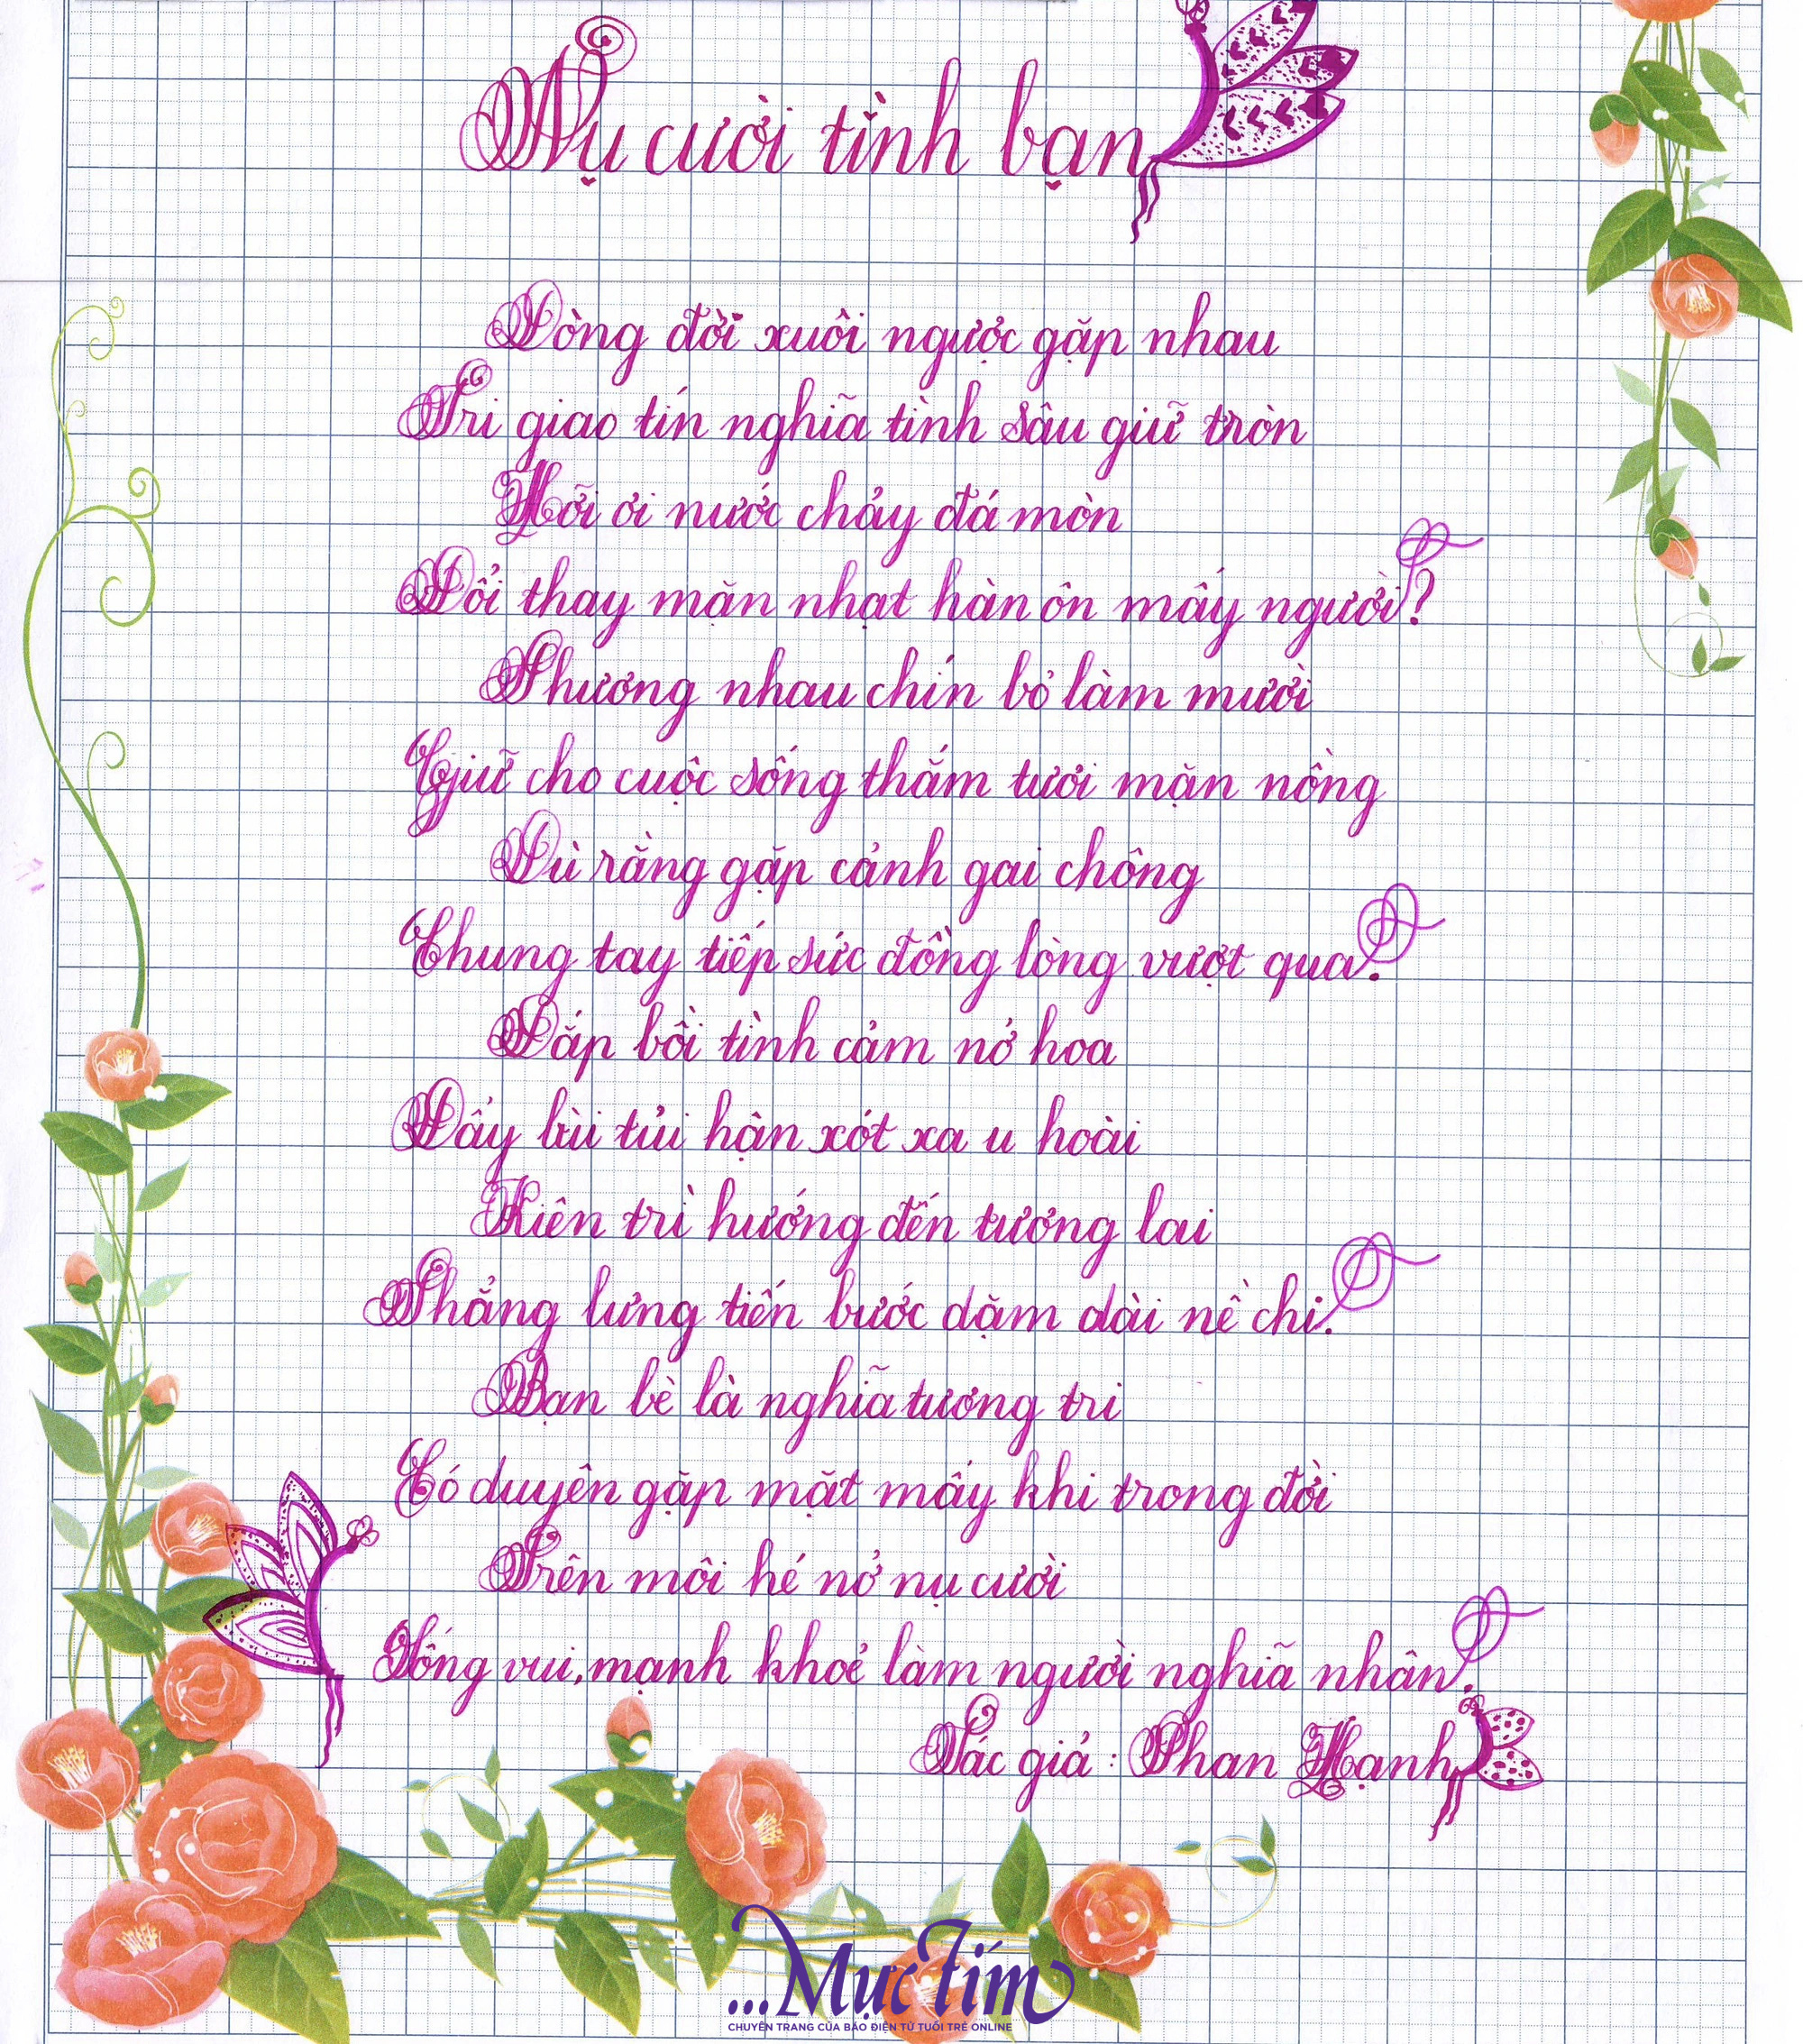 Nụ cười tình bạn
Dòng đời xuôi ngược gặp nhau
Tri giao tín nghĩa tình sâu giữ tròn
Hỡi ơi nước chảy đá mòn
Đổi thay mặn nhạt hàn ôn mấy người?
Thương nhau chín bỏ làm mười
Giữ cho cuộc sống thắm tươi mặn nồng
Dù rằng gặp cảnh gai chông
Chung tay tiếp sức đồng lòng vượt qua.
Đắp bồi tình cảm nở hoa
Đẩy lùi tủi hận xót xa u hoài
Kiên trì hướng đến tương lai
Thẳng lưng tiến bước dặm dài nề chi.
Bạn bè là nghĩa tương tri
Có duyên gặp mặt mấy khi trong đời
Trên môi hé nở nụ cười
Sống vui, mạnh khoẻ làm người nghĩa nhân.
Tác giả : Phan Hạnh
...Mực Tím
CHUYÊN TRANG CỦA BÁO ĐIỆN TỬ TUỔI TRẺ ONLINE